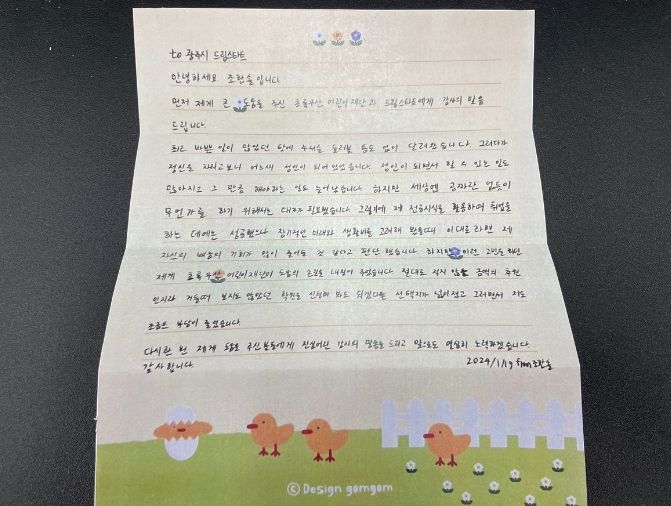 to 광주시 드림스타트
안녕하세요 조한솔입니다.
먼저 제게 큰 도움을 주신 초록우산 어린이재단과 드림스타트에게 감사의 말씀
드립니다.
최근 바쁜 일이 많았던 탓에 주위를 둘러볼 틈도 없이 달려왔습니다. 그러다가
정신을 차리고보니 어느새 성인이 되어있었습니다. 성인이 되면서 할 수 있는 일도
많아지고 그 만큼 해야하는 일도 늘어났습니다. 하지만 세상엔 공짜란 없듯이
무언가를 하기 위해서는 대가가 필요했습니다. 그렇기에 제 전공지식을 활용하여 취업을
하는 데에는 성공했으나 장기적인 미래와 생활비를 고려해 봤을때 이대로라면 제
자신의 배움의 기회가 많이 줄어들 것 같다고 판단했습니다. 하지만 이런 고민을 하던
제게 초록우산 어린이재단이 도움의 손길을 내밀어 주었습니다. 절대로 작지 않은 금액의 후원
인지라 거들떠 보지도 않았던 학원을 신청해 봐도 되겠다는 선택지가 넓어졌고 그러면서 저도
조금은 부담이 줄었습니다.
다시한 번 제게 도움을 주신분들에게 진심어린 감사의 말씀을 드리고 앞으로도 열심히 노력하겠습니다.
감사합니다. 2024/1/19 from조한솔
© Design gomgom